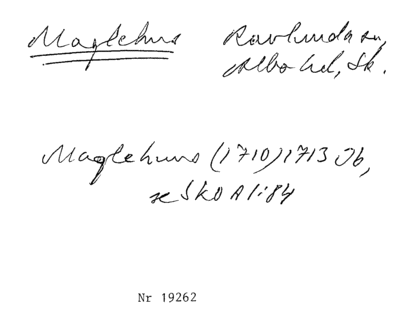 Maglehus Ravlunda sn,
Albo hd, Sk.
Maglehuus (1710) 1713 Jb,
se SkO A 1:84
Nr 19262